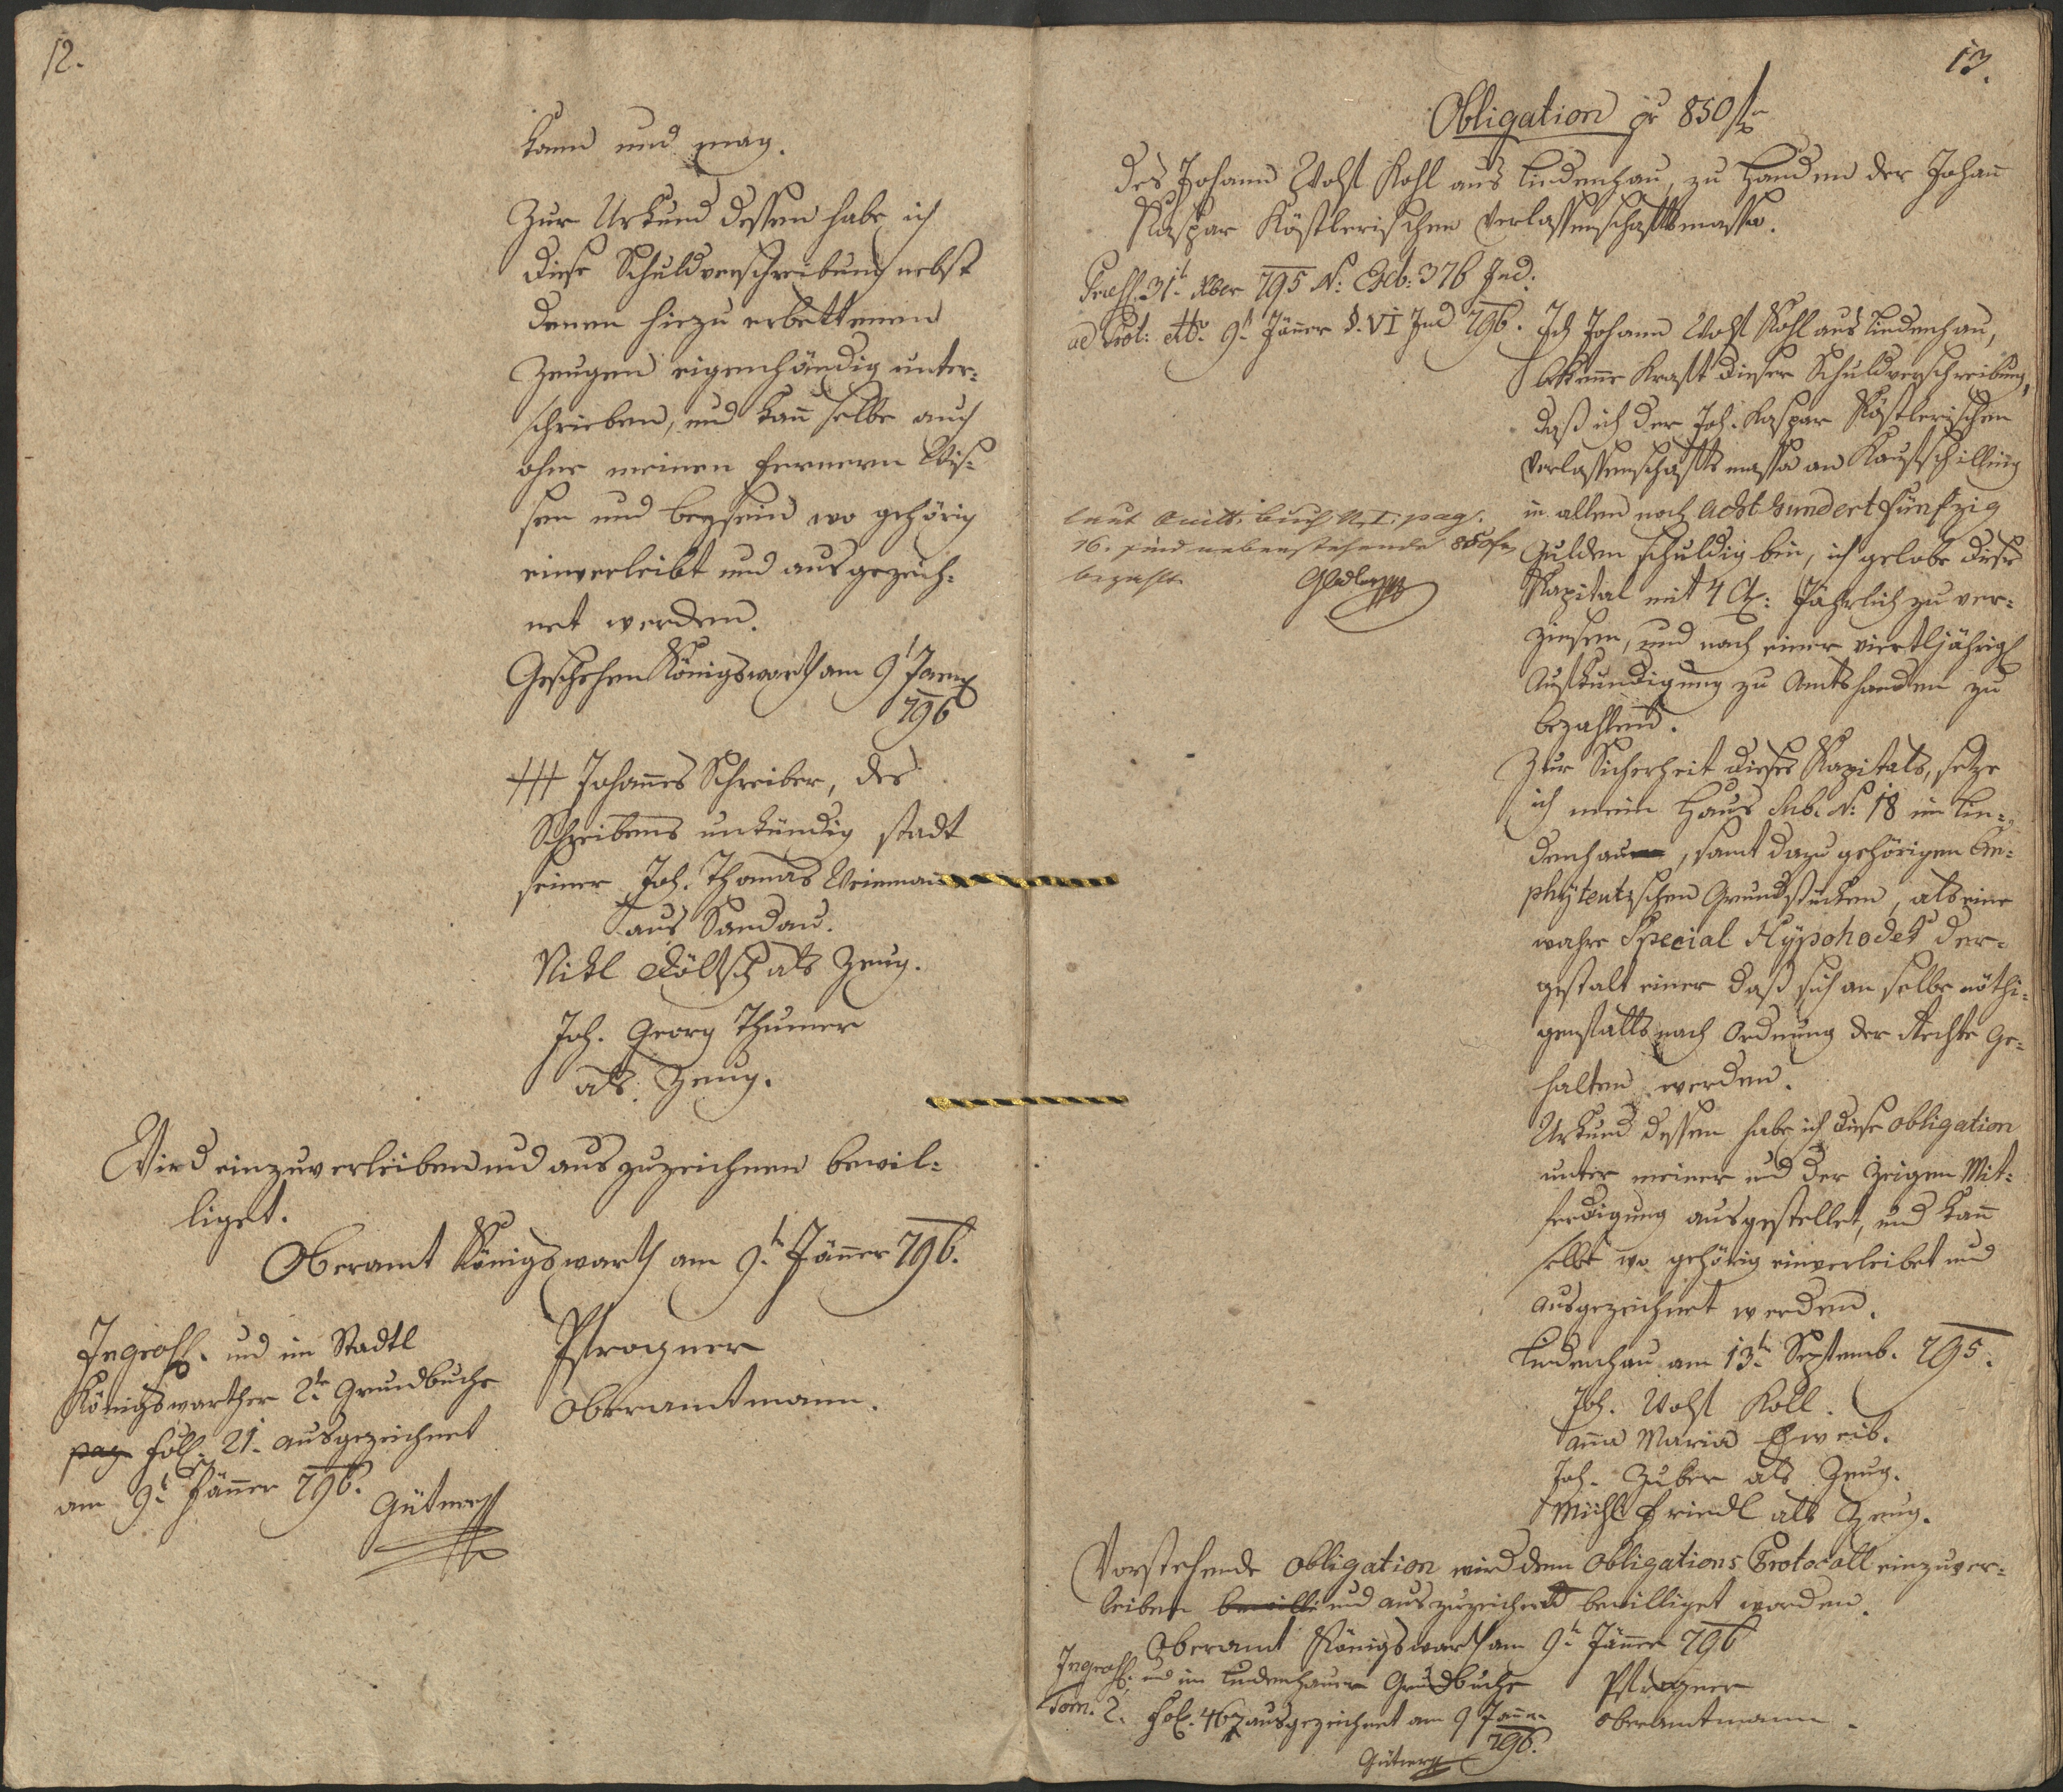 12.
kann und mag.
Zur Urkund dessen habe ich
diese Schuldverschreibung nebst
denen hiezu erbettenen
Zeugen eigenhändig unter-
schrieben, und kann selbe auch
ohne meinen fernern Wis-
sen und beysein wo gehörig
einverleibt und ausgezeich-
net werden.
Geschehen Königswarth am 9t
796
+++ Johannes Schreiber, des
Schreibens unkündig stadt
seiner Joh. Thomas Weinman
aus Sandau.
Nikl als Zeug.
Joh. Georg Thumer
als Zeug.
Wird einzuverleiben und auszuzeichnen bewil-
liget.
Oberamt Königswarth am 9t Jänner 796.
Ingross. und im Stadtl
Königswarther 2te Grundbuche
pag fol. 21. ausgezeichnet
am 9t Jänner 796.
Pstrogner
Oberamtmann.
13.
Obligation pr 850 f
des Johann Wolf Kohl aus Lindenhau, zu Handen der Johann
Kaspar Köstlerischen Verlassenschaftsmassa.
31t Xber 795 N: Exb: 376 Jud:
ad Prot: dto 9t Jänner §. VI Jud 796.
Ich Johann Wolf Kohl aus Lindenhau,
bekenne Kraft dieser Schuldverschreibung,
daß ich der Joh. Kaspar Köstlerischen
Verlassenschafts massa an Kaufschilling
in allem noch Acht hundert Fünfzig
Gulden schuldig bin, ich gelobe diese
Kapital mit 4 Jährlich zu ver-
zinsen, und nach einer viertljährig
Aufkündigung zu Amtshanden zu
bezahlen.
laut Quitt. buch N. I. pag.
16. sind nebenstehende 850 f
bezahlt.
Zur Sicherheit dieses Kapitals, setze
ich mein Haus Sub. N: 18 in Lin-
denhau, samt dazu gehörigen Em-
phytevtischen Grundstücken, als eine
wahre Special Hypohodek der-
gestalt einer daß sich an selbe nöthi-
genfalls nach Ordnung der Rechte ge-
halten werden.
Urkund dessen habe ich diese obligation
unter meiner und der Zeigen Mit-
ferdigung ausgestellet, und kann
selbe wo gehörig einverleibet und
ausgezeichnet werden.
Lindenhau am 13t Septemb. 795.
Joh. Wolf Koll.
Anna Maria Eheweib.
Joh. Zuber als Zeug.
Michl Friedl als Zeug.
Vorstehende Obligation wird dem Obligations Protocoll einzuver-
leiben bewilli und auszuzeichnet bewilliget worden.
Oberamt Königswarth am 9t Jänner 796
Ingross. und im Lindenhauer Grundbuche
Tom. 2. fol. 467 ausgezeichnet am 9 Jänner
796.
Pstrogner
Oberamtmann.